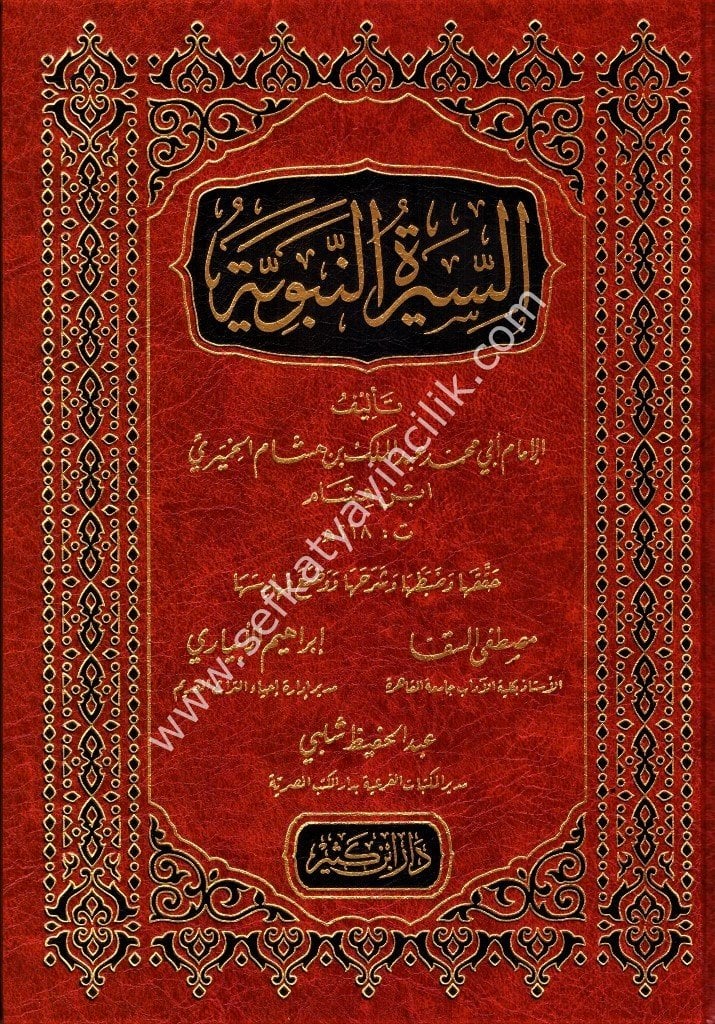 السِّيرَةُ النَّبَوِيَّةُ
تأليف
الإمام أبي محمد عبد الملك بن هشام الحميري
ابن هشام
ت:
حققها وضبطها وشرحها ووضع فهارسها
مصطفى السقا إبراهيم الأبياري
الأستاذ بكلية الآداب جامعة القاهرة مدير إدارة إحياء التراث القديم
عبد الحفيظ شلبي
مدير المكتبات الفرعية بدار الكتب المصرية
دار ابن كثير
www.sefkatyayincilik.com